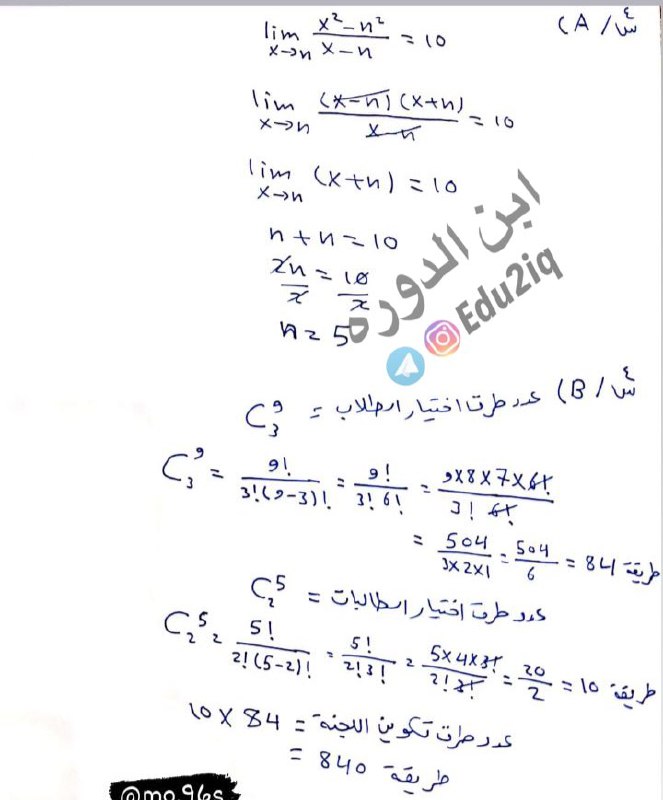 س٤/ A)
lim x→n (x² - n²)/(x - n) = 10
lim x→n (x-n)(x+n)/(x-n) = 10
lim x→n (x+n) = 10
n + n = 10
2n/2 = 10/2
n = 5
ابن الدوره
Edu2iq
س٤/ B) عدد طرق اختيار الطلاب = C⁹₃
C⁹₃ = 9!/3!(9-3)! = 9!/3! 6! = 9×8×7×6!/3! 6!
= 504/3×2×1 = 504/6 = 84 طريقة
عدد طرق اختيار الطالبات = C⁵₂
C⁵₂ = 5!/2!(5-2)! = 5!/2!3! = 5×4×3!/2!3! = 20/2 = 10 طريقة
عدد طرق تكوين اللجنة = 10 × 84
= 840 طريقة
@mo.96s